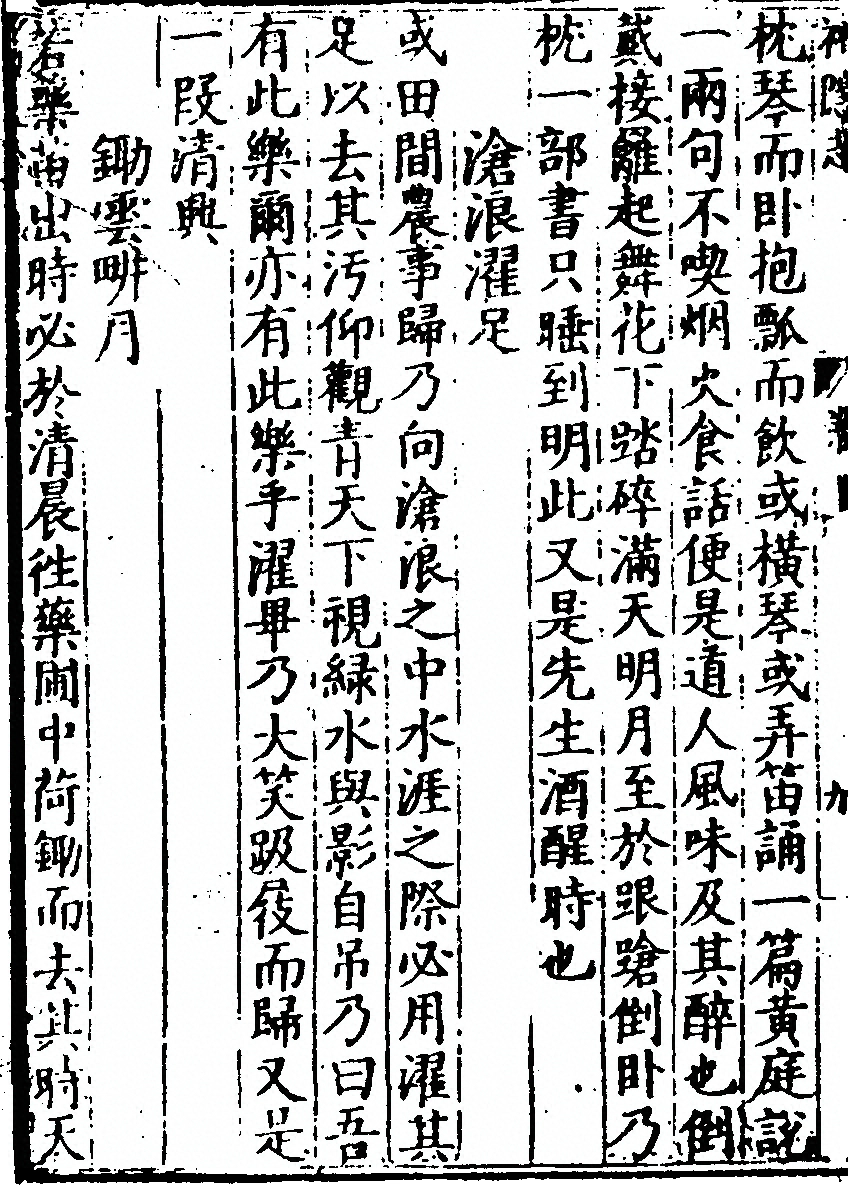 枕琴而卧抱瓢而飲或橫琴或弄笛誦一篇黃庭說
一兩句不喫烟火食話便是道人風味及其醉也倒
戴接籬起舞花下踏碎滿天明月至於踉蹌倒卧乃
枕一部書只睡到明此又是先生酒醒時也
滄浪濯足
或田間農事歸乃向滄浪之中水涯之際必用濯其
足以去其污仰觀青天下視綠水與影自吊乃曰吾
有此樂爾亦有此樂乎濯畢乃大笑趿屐而歸又是
一段清興
鋤雲畊月
若藥苗出時必於清晨徃藥圃中荷鋤而去其時天